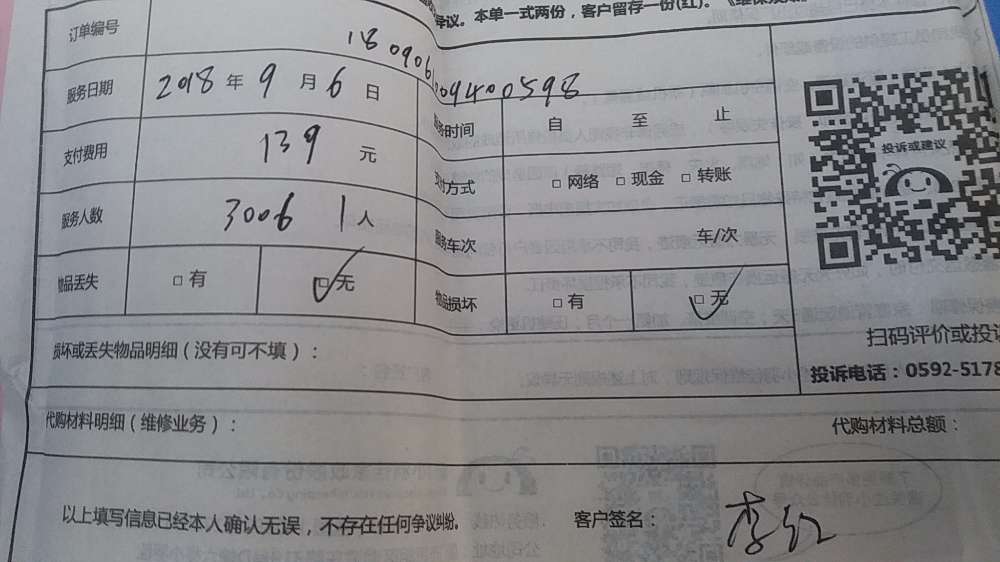 争议。本单一式两份，客户留存一份(红)。
订单编号 180906009400598
服务日期 2018 年 9 月 6 日 服务时间 自 至 止
支付费用 139 元 支付方式 □ 网络 □ 现金 □ 转账
服务人数 3006 1 人 服务车次 车/次
物品丢失 □ 有 □ 无 物品损坏 □ 有 □ 无
投诉或建议
扫码评价或投诉
损坏或丢失物品明细（没有可不填）：
投诉电话：0592-5178
代购材料明细（维修业务）： 代购材料总额：
以上填写信息已经本人确认无误，不存在任何争议纠纷。 客户签名： 李红